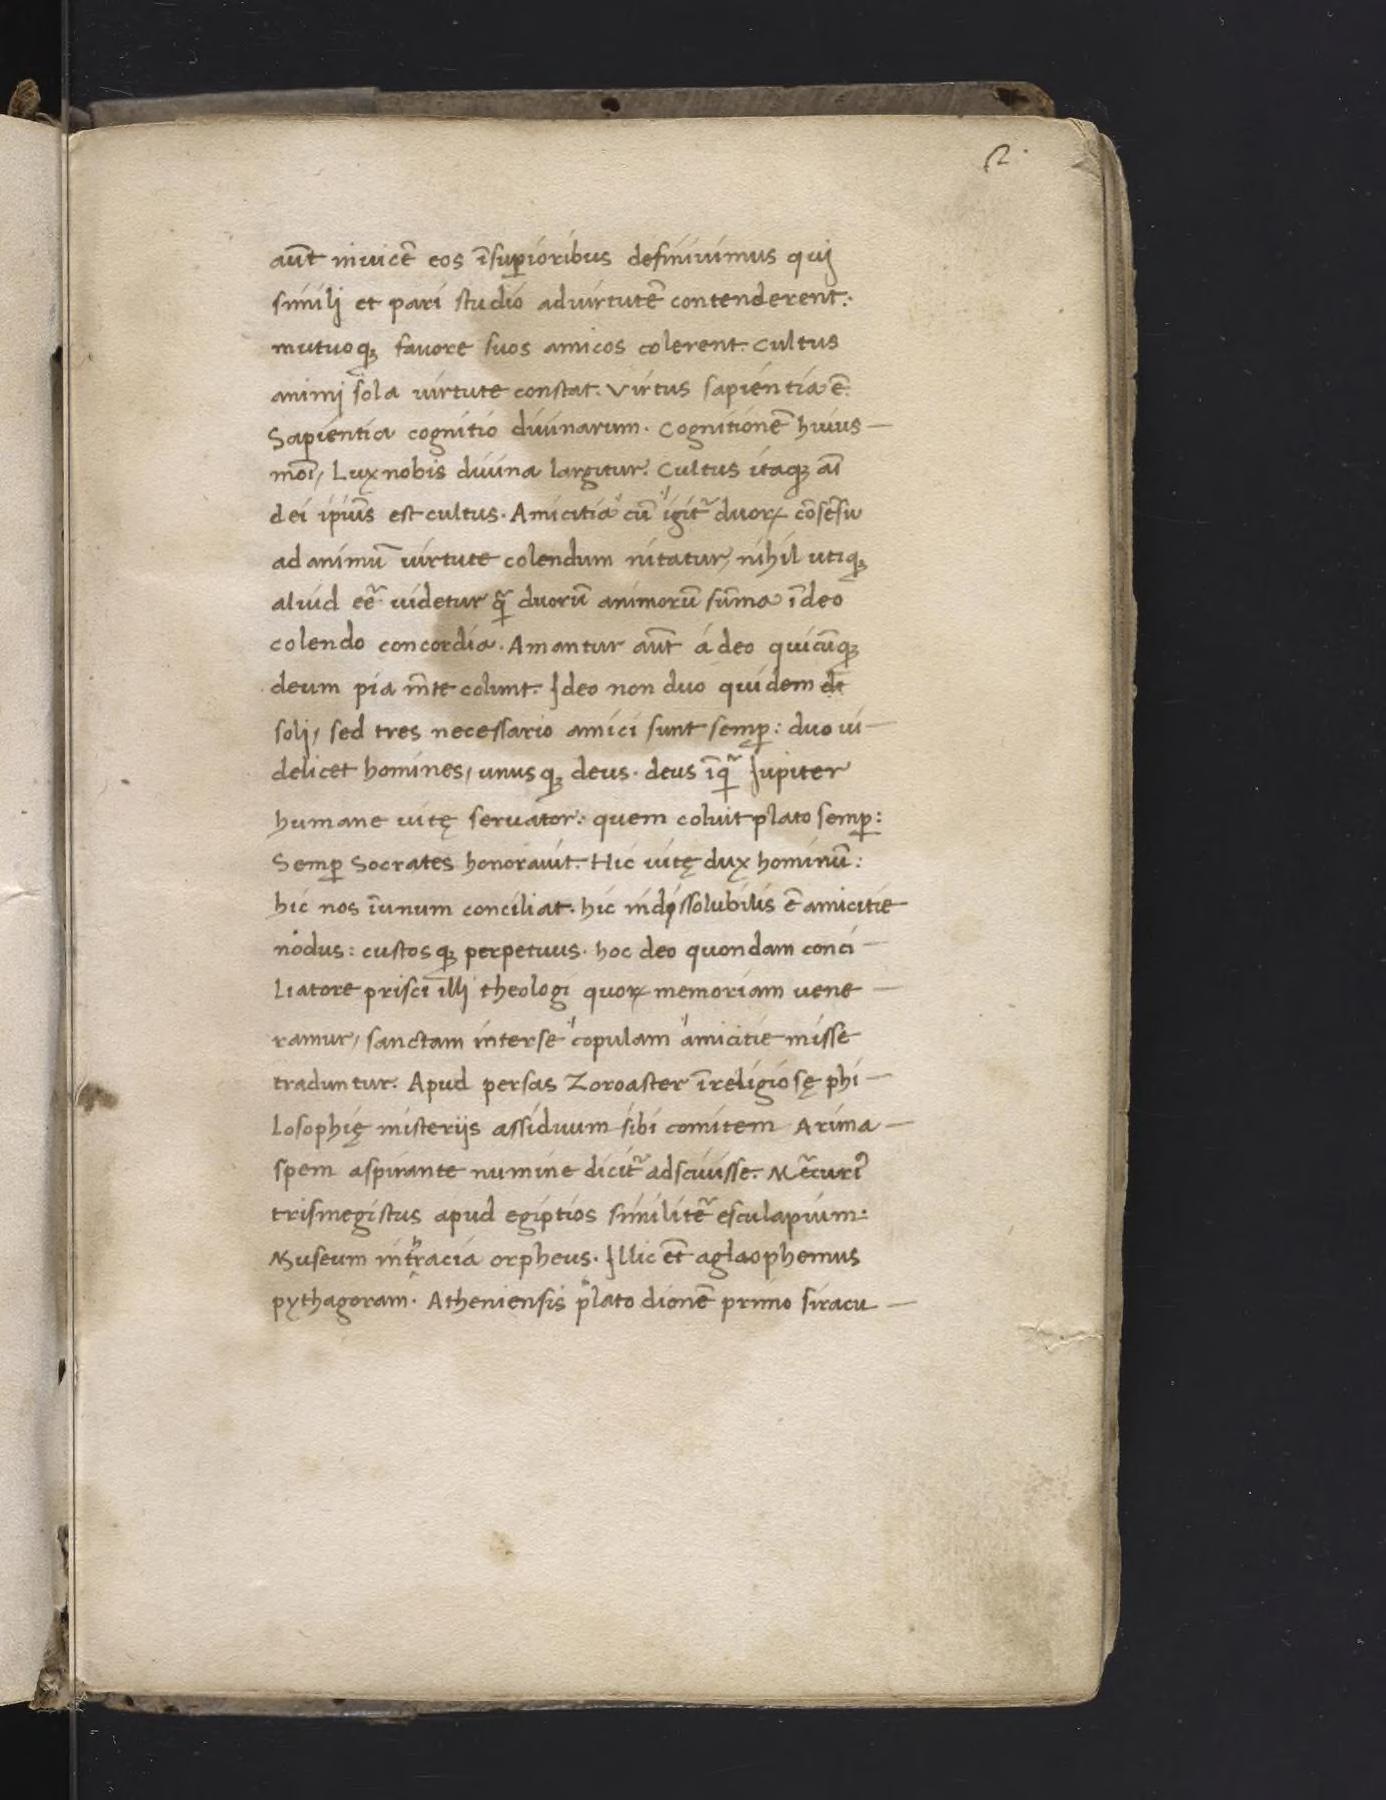 2.
aūt invicē eos īsuꝑioribus definivimus quj
similj et pari studio advirtutē contenderent.
mutuoqꝫ favore suos amicos colerent. Cultus
animj sola virtute constat. Virtus sapientia ē.
Sapientia cognitio divinarum. Cognitionē huius—
moī, Lux nobis divina largitur. Cultus itaqꝫ aī
dei ipiūs est cultus. Amicitia cū igit᷑ duoꝝ cōsēsu
ad animū virtute colendum nitatur, nihil utiqꝫ
aliud eē᷑ videtur q̄ duorū animorū sūma īdeo
colendo concordia. Amantur aūt á deo quicūqꝫ
deum pia m̄te colunt. Ideo non duo quidem
solj, sed tres necessario amici sunt semꝑ: duo vi—
delicet homines, unusqꝫ deus. deus īq᷑ Jupiter
humane vitę servator: quem coluit plato semꝑ:
Semꝑ Socrates honoravit. Hic vitę dux hominū:
hic nos īunum conciliat. hic indissolubilis ē amicitie
nodus: custosqꝫ perpetuus. hoc deo quondam conci—
Liatore prisci illj theologi quoꝝ memoriam vene—
ramur, sanctam interse copulam amicitie misse
traduntur. Apud persas Zoroaster īreligiosę phi—
Losophię misterijs assiduum sibi comitem Arima—
spem aspirante numine dicit᷑ adscivisse. Mērcuri᷒
trismegistus apud egiptios similit᷑ esculapium:
Museum intʰracia orpheus. Illic et̄ aglaophemus
pythagoram. Atheniensis plato dionē primo siracu—